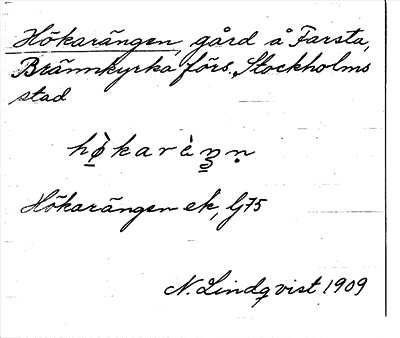 Hökarängen, gård å Farsta,
Brännkyrka förs. Stockholms
stad
hø̀karèŋn
Hökarängen ek, Gj 75
N. Lindqvist 1909